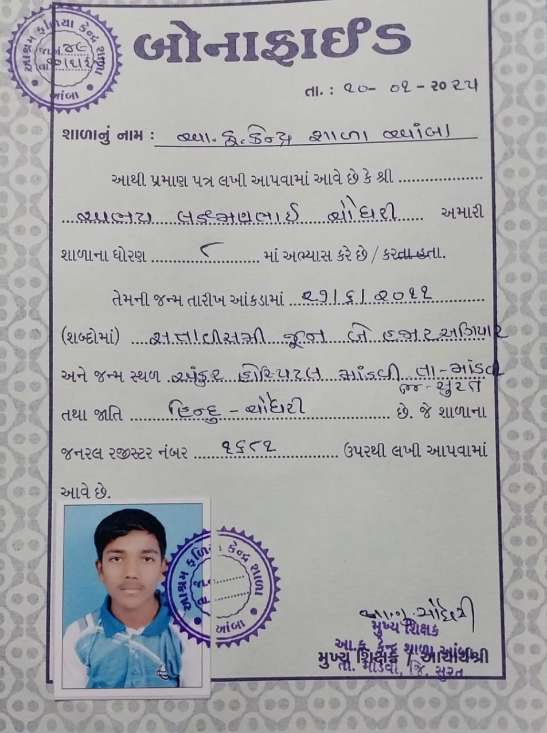 બોનાફાઈડ
તા. : ૨૦- ૦૧ - ૨૦૨૫
શાળાનું નામ : આ. કુ. કેન્દ્ર શાળા આંબા
આથી પ્રમાણ પત્ર લખી આપવામાં આવે છે કે શ્રી
અભય લક્ષ્મણભાઈ ચૌધરી અમારી
શાળાના ધોરણ ૮ માં અભ્યાસ કરે છે / કરતા હતા.
તેમની જન્મ તારીખ આંકડામાં ૨૭/૬/૨૦૧૧
(શબ્દોમાં) સત્તાવીસમી જૂન બે હજાર અગિયાર
અને જન્મ સ્થળ અંકુર હોસ્પિટલ માંડવી તા-માંડવી
જી-સુરત
તથા જાતિ હિન્દુ - ચૌધરી છે. જે શાળાના
જનરલ રજીસ્ટર નંબર ૧૬૮૧ ઉપરથી લખી આપવામાં
આવે છે.
આશ્રમ ફળિયા કેન્દ્ર શાળા
આંબા
મુખ્ય શિક્ષક
આ. ફ. કેન્દ્ર શાળા આંબા
મુખ્ય શિક્ષક / આચાર્યશ્રી
તા. માંડવી, જિ. સુરત